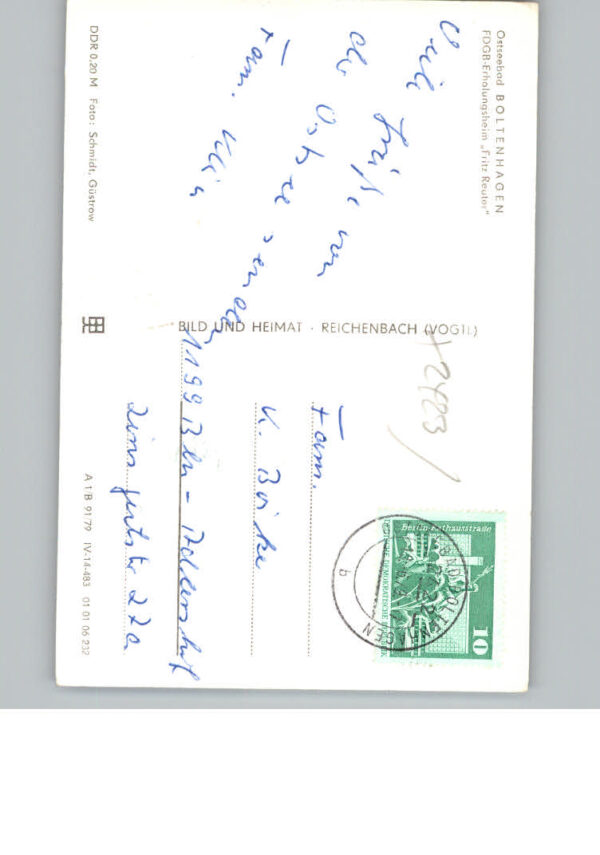 Ostseebad BOLTENHAGEN
FDGB-Erholungsheim „Fritz Reuter"
Viele Grüße von
der Ostsee senden
Fam. Klein
DDR 0,20 M Foto: Schmidt, Güstrow
BILD UND HEIMAT · REICHENBACH (VOGTL)
Berlin-Rathausstraße
DEUTSCHE DEMOKRATISCHE
10
BAD BOLTENHAGEN
b
Fam.
K.
1199 Bln-Adlershof
22a
A 1/B 91/79 IV-14-483 01 01 06 232